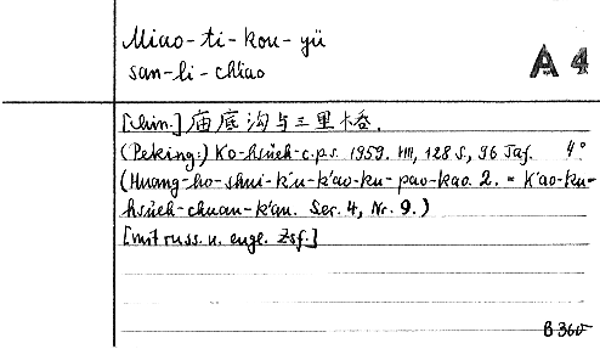 Miao-ti-kou-yü
san-li-chiao
A 4
[Chin.] 庙底沟与三里桥.
(Peking:) Ko-hsüeh-c.p.s. 1959. VIII, 128 S., 96 Taf. 4°
(Huang-ho-shui-k'u-k'ao-ku-pao-kao. 2. = K'ao-ku-
hsüeh-chuan-k'an. Ser. 4, Nr. 9.)
[mit russ. u. engl. Zsf.]
B 360